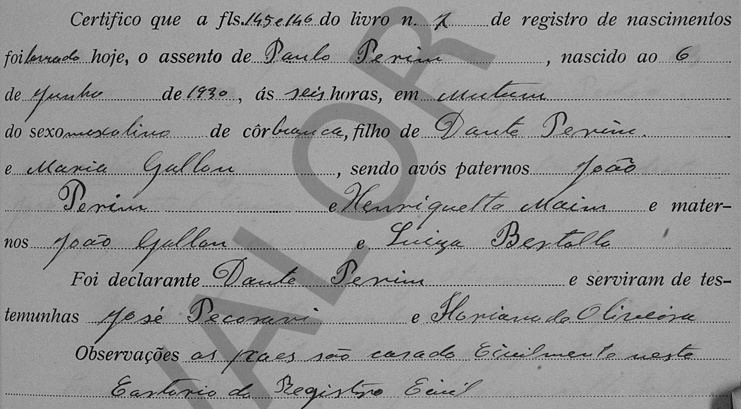 Certifico que a fls. 145 e 146 do livro n. 7 de registro de nascimentos
foi lavrado hoje, o assento de Paulo Perim, nascido ao 6
de Junho de 1930, ás seis horas, em Mutum
do sexo masculino de côr branca, filho de Dante Perim.
e Maria Gallon, sendo avós paternos João
Perim e Henriquetta Maim e mater-
nos João Gallon e Luiza Bertollo
Foi declarante Dante Perim e serviram de tes-
temunhas José Pecoravi e Floriano de Oliveira
Observações os paes são casado Civilmente neste
Cartório do Registro Civil
VALOR